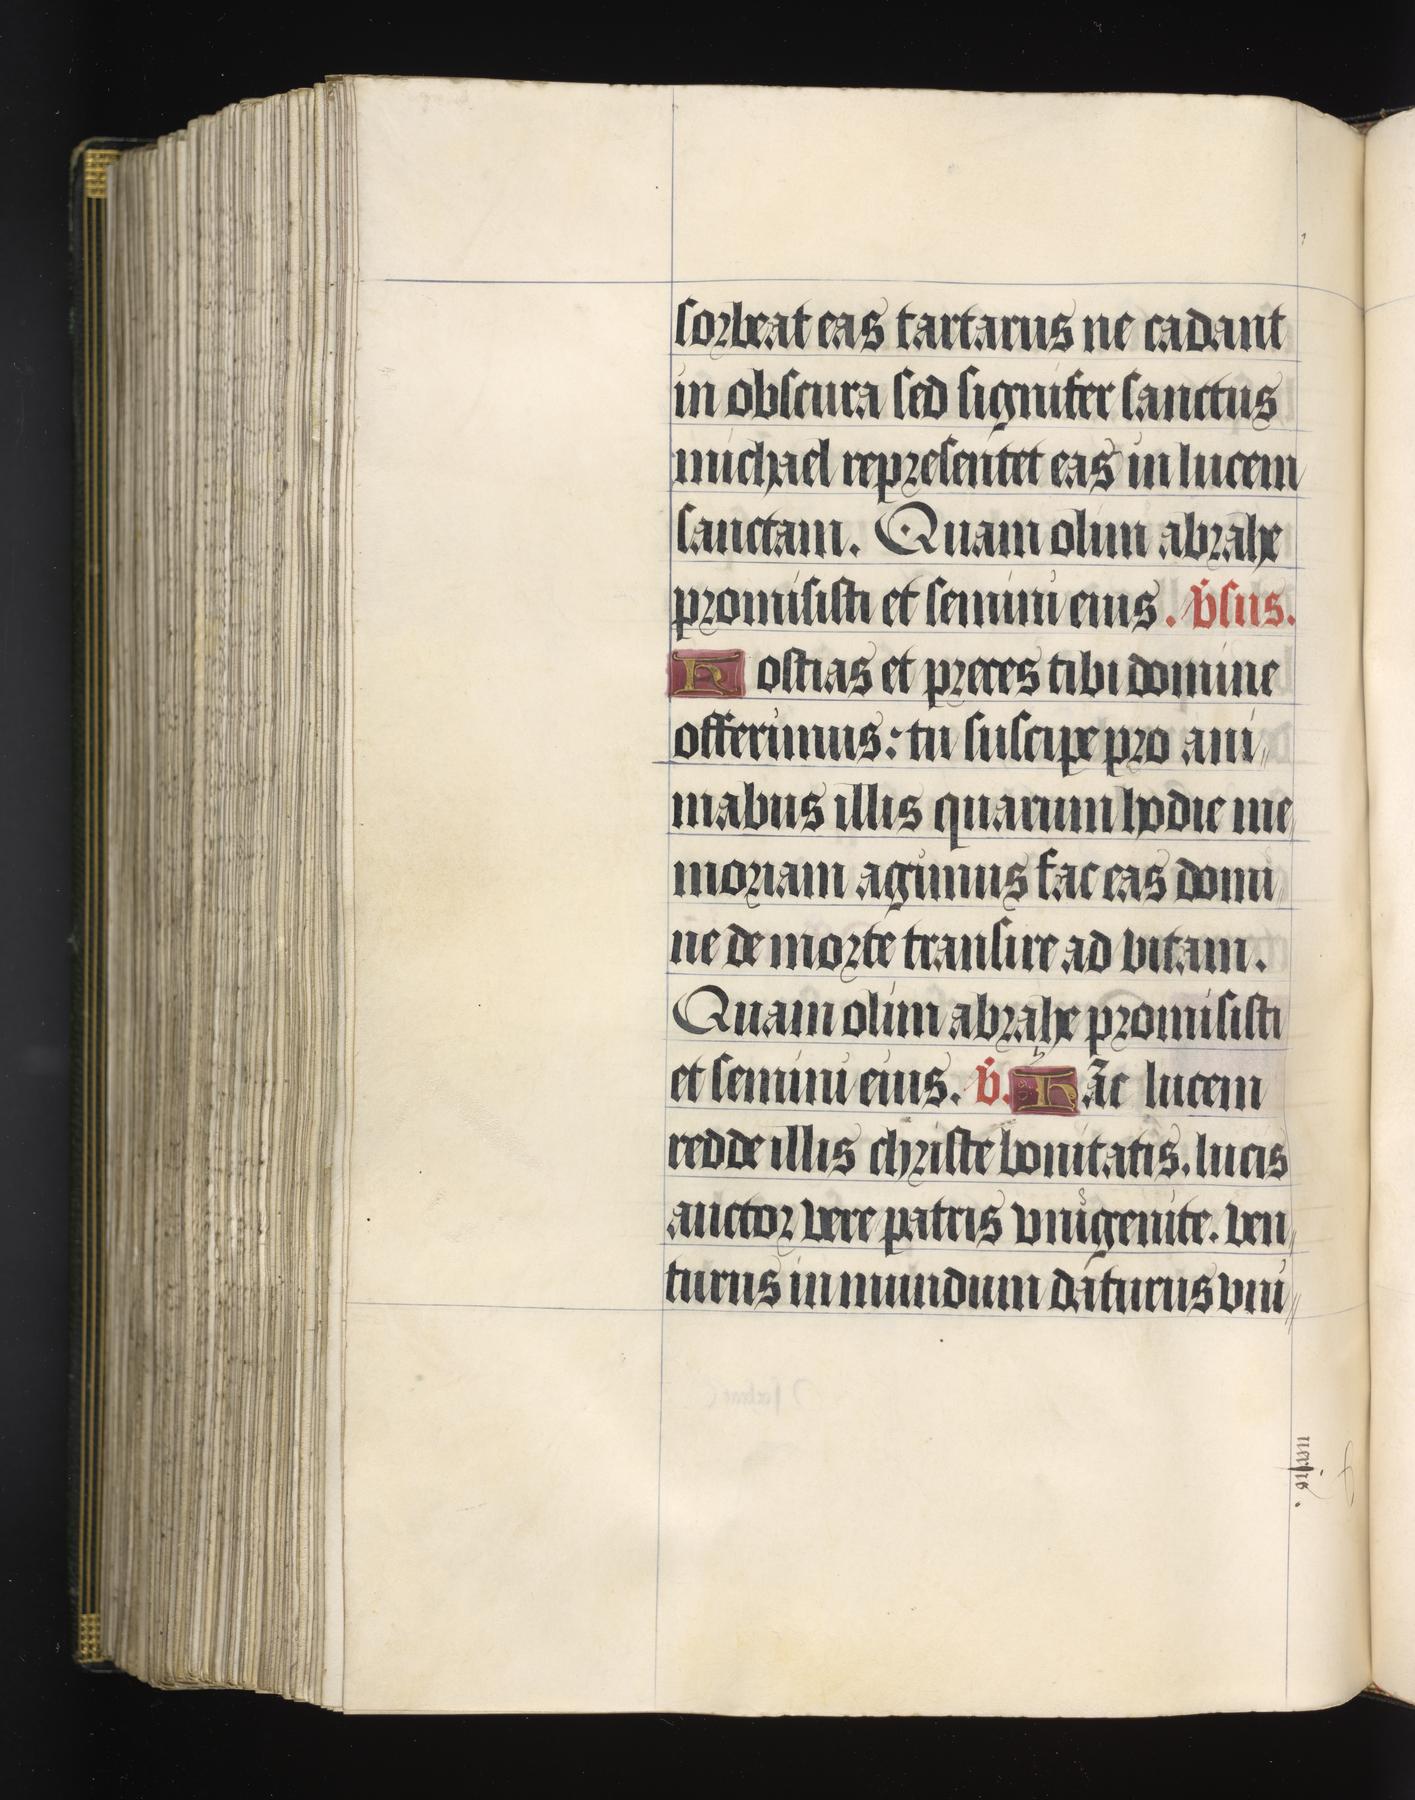 sorbeat eas tartarus ne cadant
in obscura sed signifer sanctus
michael representet eas in lucem
sanctam. Quam olim abrahe
promisisti et semini eius. v̄sus.
Hostias et preces tibi domine
offerimus: tu suscipe pro ani„
mabus illis quarum hodie me
moriam agimus fac eas domi„
ne de morte transire ad vitam.
Quam olim abrahe promisisti
et semini eius. v̄. Hāc lucem
redde illis christe bonitatis. lucis
auctor vere patris vnigenite. ven„
turus in mundum daturus vni„